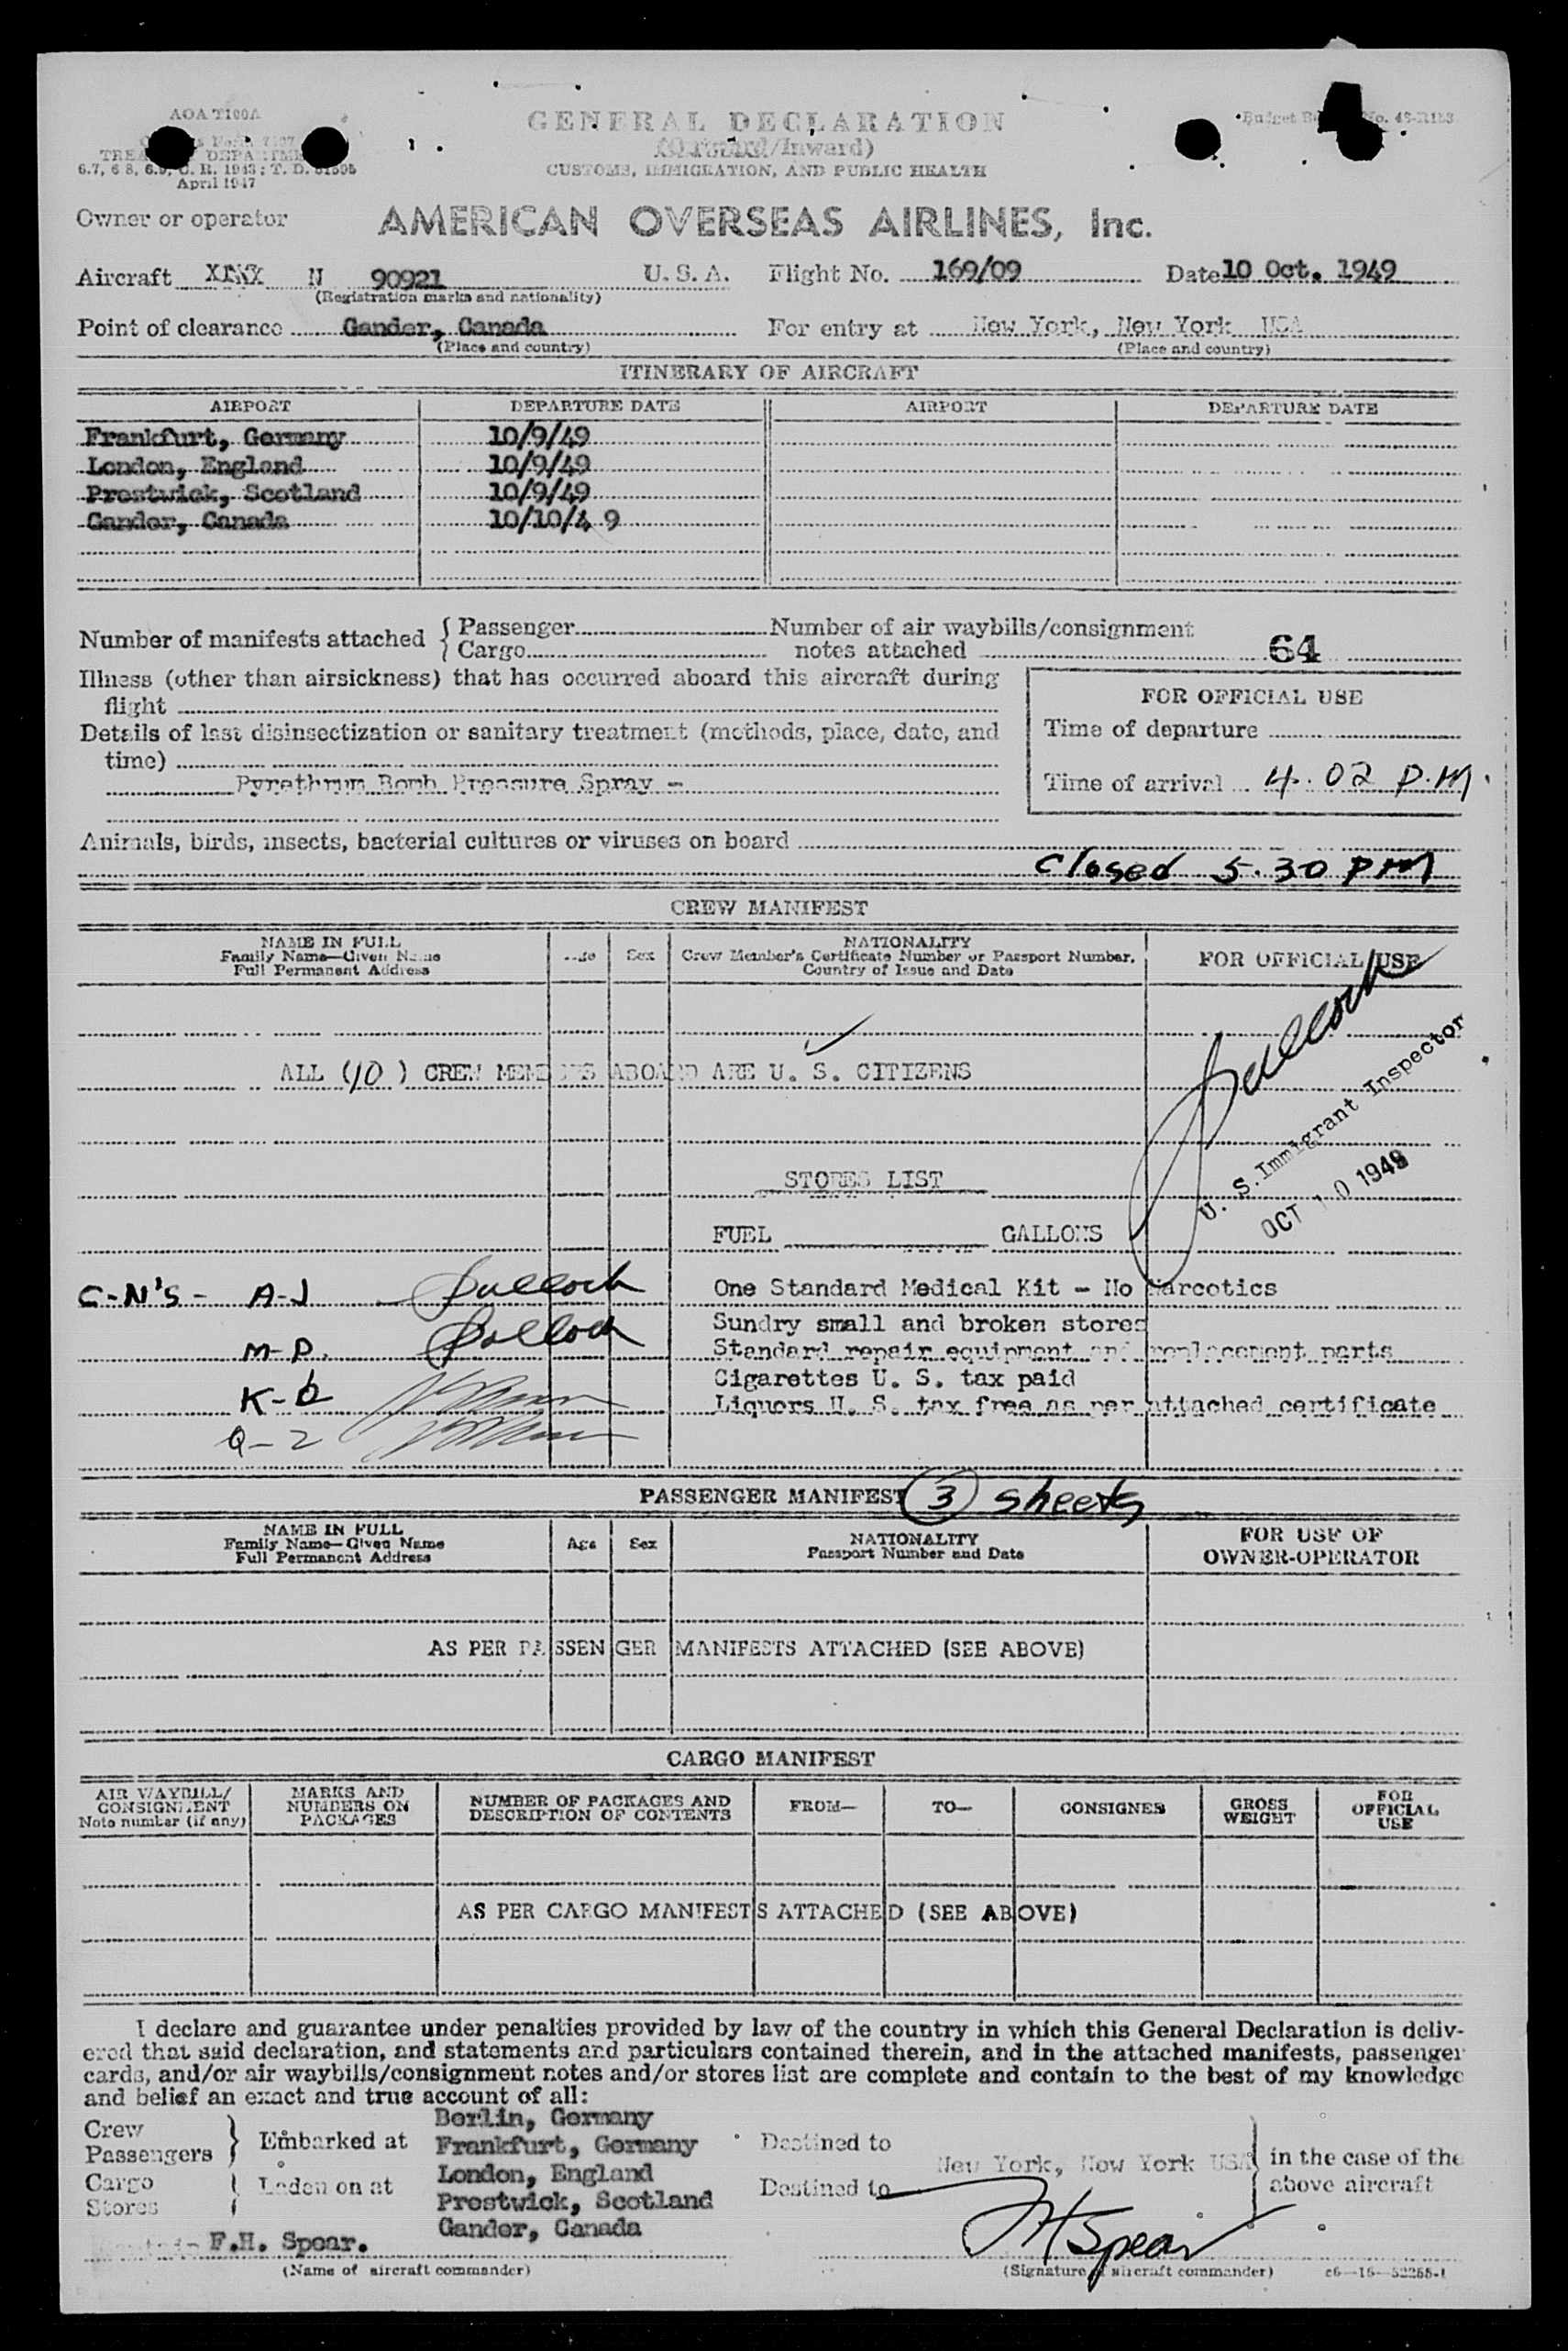 AOA T100A
TREASURY DEPARTMENT
6.7, 6 8, 6.9, C. R. 1943; T. D. 51505
April 1947
GENERAL DECLARATION
(Outward/Inward)
CUSTOMS, IMMIGRATION, AND PUBLIC HEALTH
Budget No. 48-R123
Owner or operator AMERICAN OVERSEAS AIRLINES, Inc.
Aircraft N 90921 U. S. A. Flight No. 169/09 Date 10 Oct. 1949
(Registration marks and nationality)
Point of clearance Gander, Canada For entry at New York, New York USA
(Place and country) (Place and country)
ITINERARY OF AIRCRAFT
AIRPORT DEPARTURE DATE AIRPORT DEPARTURE DATE
Frankfurt, Germany 10/9/49
London, England 10/9/49
Prestwick, Scotland 10/9/49
Gander, Canada 10/10/4 9
Number of manifests attached { Passenger Number of air waybills/consignment
Cargo notes attached 64
Illness (other than airsickness) that has occurred aboard this aircraft during
flight
FOR OFFICIAL USE
Details of last disinsectization or sanitary treatment (methods, place, date, and
time)
Time of departure
Pyrethrum Bomb Pressure Spray -
Time of arrival 4.02 P.M.
Animals, birds, insects, bacterial cultures or viruses on board
Closed 5.30 PM
CREW MANIFEST
NAME IN FULL
Family Name—Given Name
Full Permanent Address
Age Sex
NATIONALITY
Crew Member's Certificate Number or Passport Number,
Country of Issue and Date
FOR OFFICIAL USE
ALL (10) CREW MEMBERS ABOARD ARE U. S. CITIZENS
U. S. Immigrant Inspector
OCT 10 1949
STORES LIST
FUEL GALLONS
C-N'S - A-J
One Standard Medical Kit - No Narcotics
Sundry small and broken stores
M-P.
Standard repair equipment and replacement parts
Cigarettes U. S. tax paid
K-
Liquors U. S. tax free as per attached certificate
Q-2
PASSENGER MANIFEST (3) sheets
NAME IN FULL
Family Name—Given Name
Full Permanent Address
Age Sex
NATIONALITY
Passport Number and Date
FOR USE OF
OWNER-OPERATOR
AS PER PASSENGER MANIFESTS ATTACHED (SEE ABOVE)
CARGO MANIFEST
AIR WAYBILL/
CONSIGNMENT
Note number (if any)
MARKS AND
NUMBERS ON
PACKAGES
NUMBER OF PACKAGES AND
DESCRIPTION OF CONTENTS
FROM—
TO—
CONSIGNEE
GROSS
WEIGHT
FOR
OFFICIAL
USE
AS PER CARGO MANIFESTS ATTACHED (SEE ABOVE)
I declare and guarantee under penalties provided by law of the country in which this General Declaration is deliv-
ered that said declaration, and statements and particulars contained therein, and in the attached manifests, passenger
cards, and/or air waybills/consignment notes and/or stores list are complete and contain to the best of my knowledge
and belief an exact and true account of all:
Crew
Passengers } Embarked at
Cargo
Stores } Laden on at
Berlin, Germany
Frankfurt, Germany
London, England
Prestwick, Scotland
Gander, Canada
Destined to
Destined to
New York, New York USA
in the case of the
above aircraft
F.H. Spear.
FH Spear
(Name of aircraft commander) (Signature of aircraft commander) c6—16—52255-1